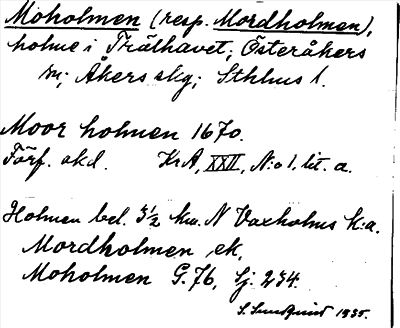 Moholmen (resp. Mordholmen),
holme i Trälhavet; Österåkers
sn; Åkers skg; Sthlms l.
Moor holmen 1670.
Förf. okd. KrA, XXII, N:o 1, lit. a.
Holmen bel. 3½ km. N Vaxholms k:a.
Mordholmen ek.
Moholmen G.76, Sj. 234.
S. Sundquist 1935.